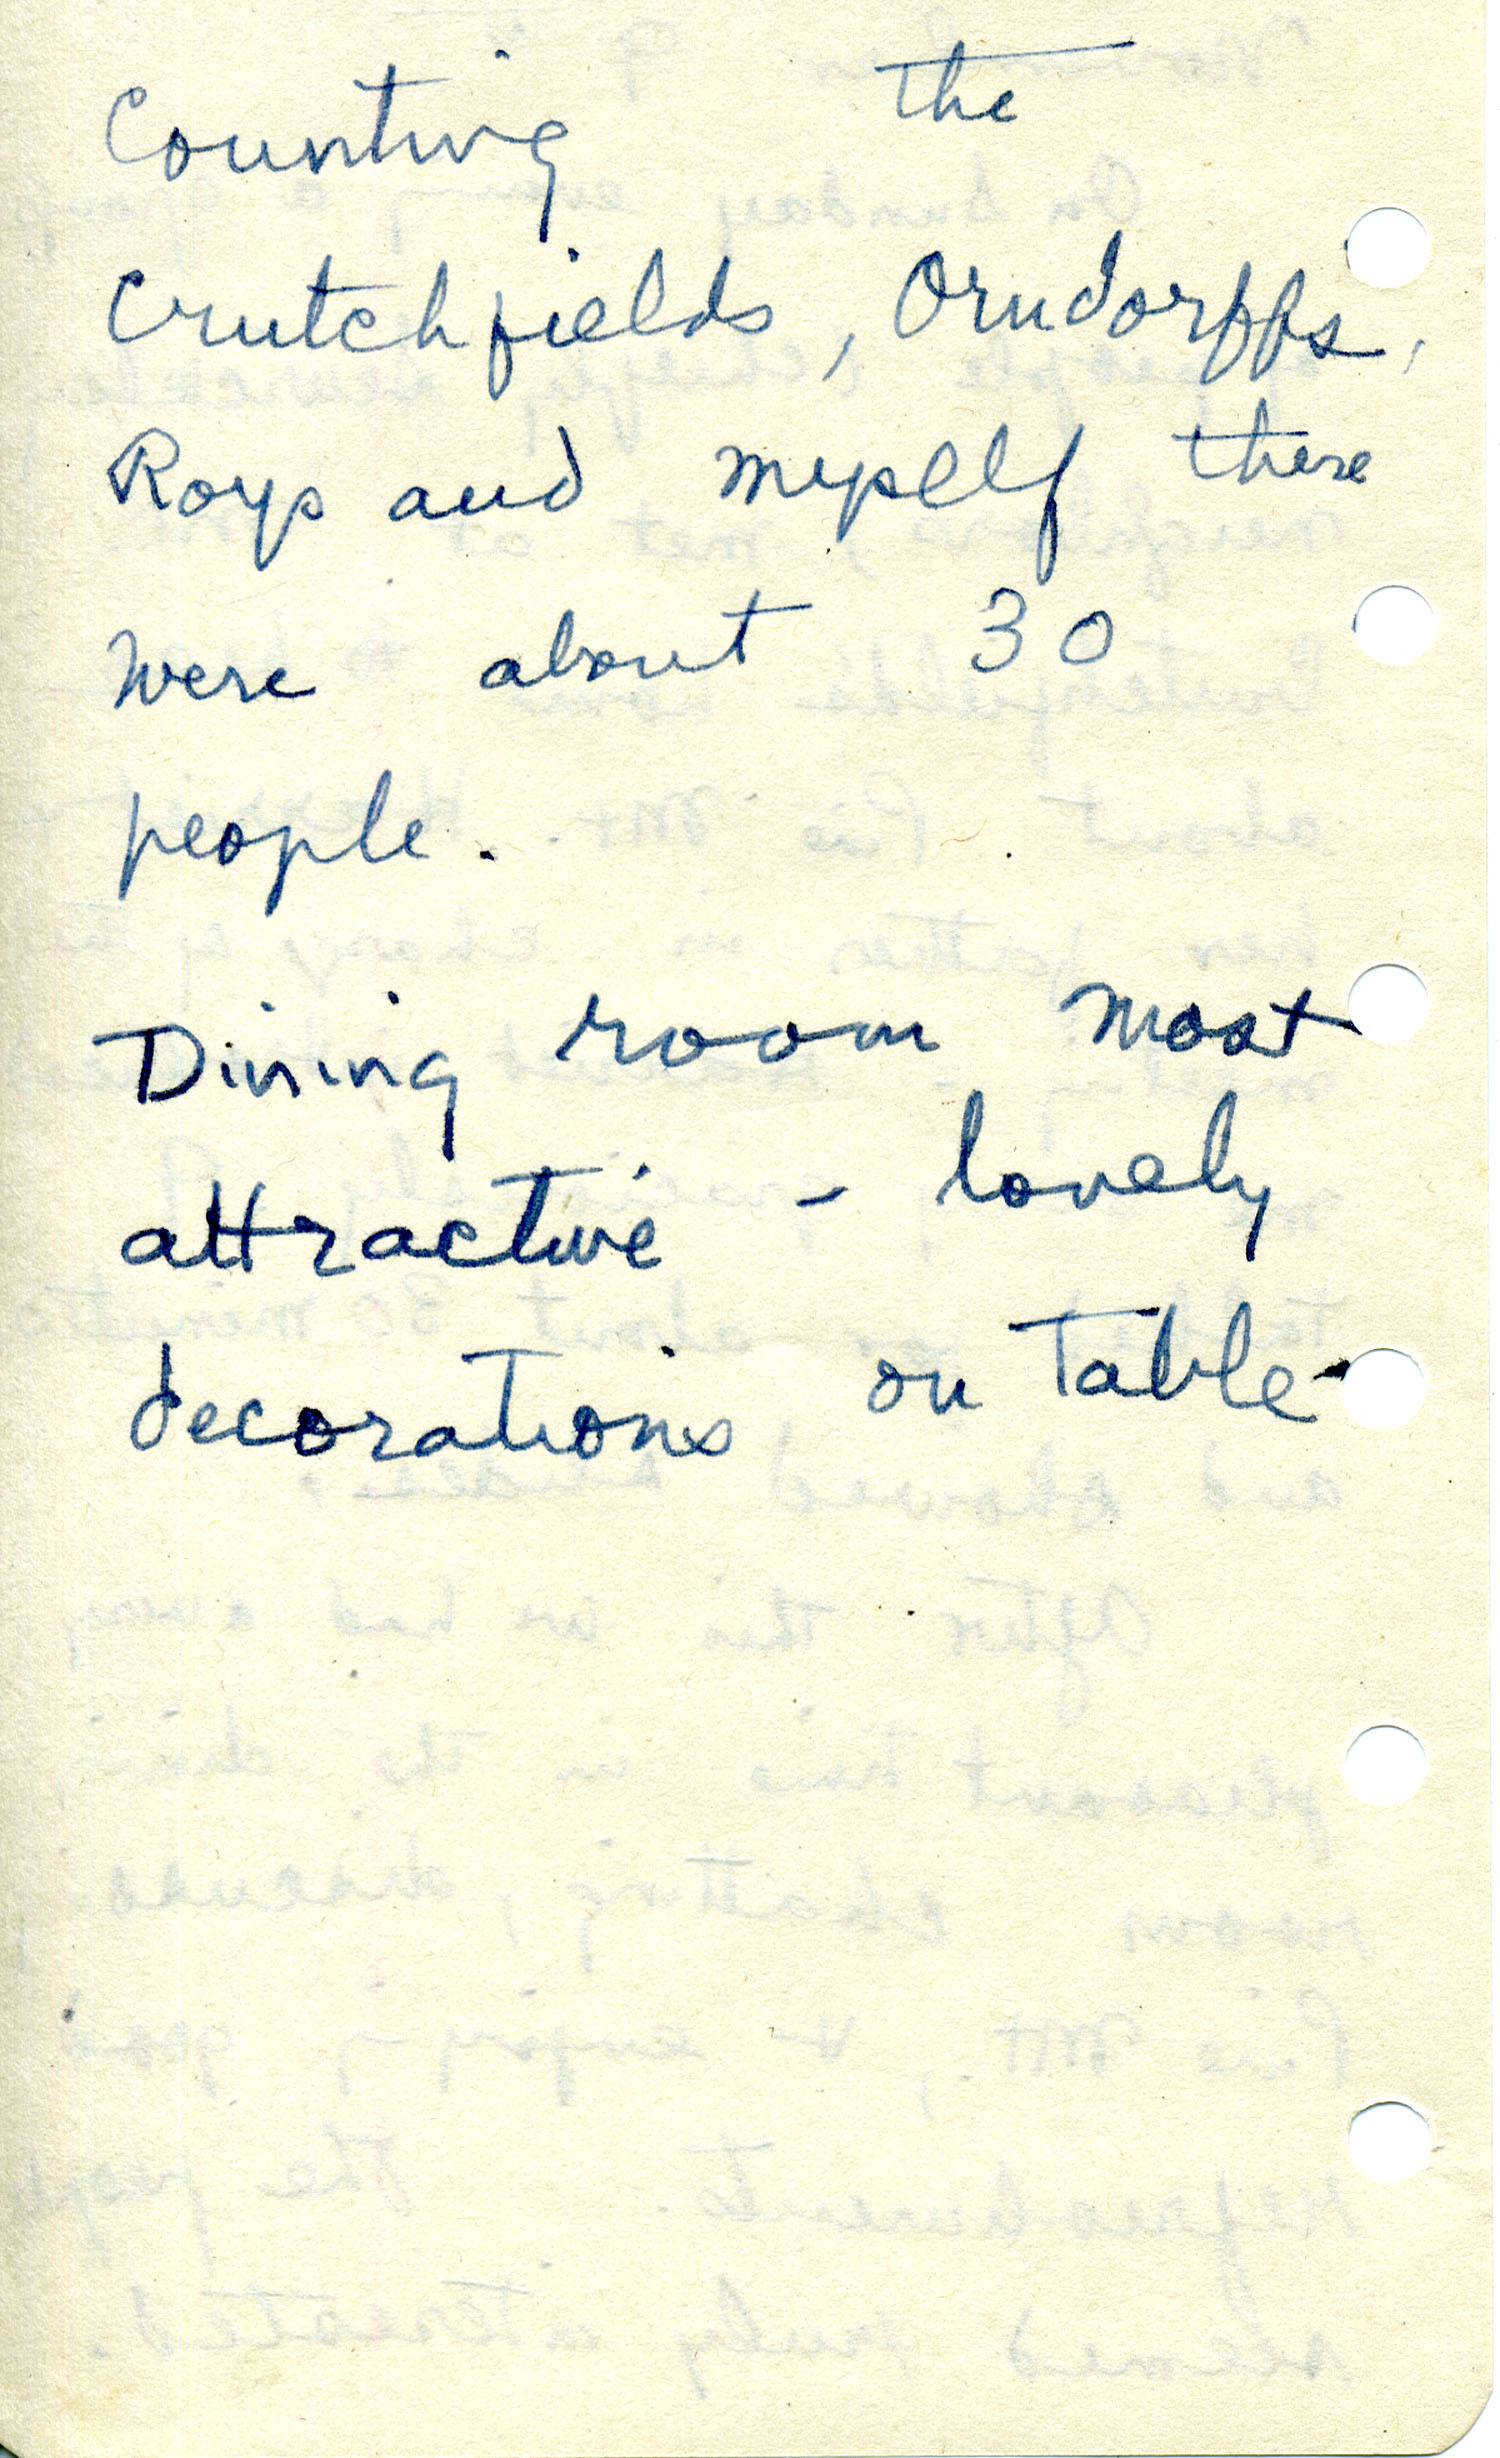 Counting the
Crutchfields, Orndorffs,
Roys and myself there
were about 30
people.
Dining room most
attractive - lovely
decorations on table